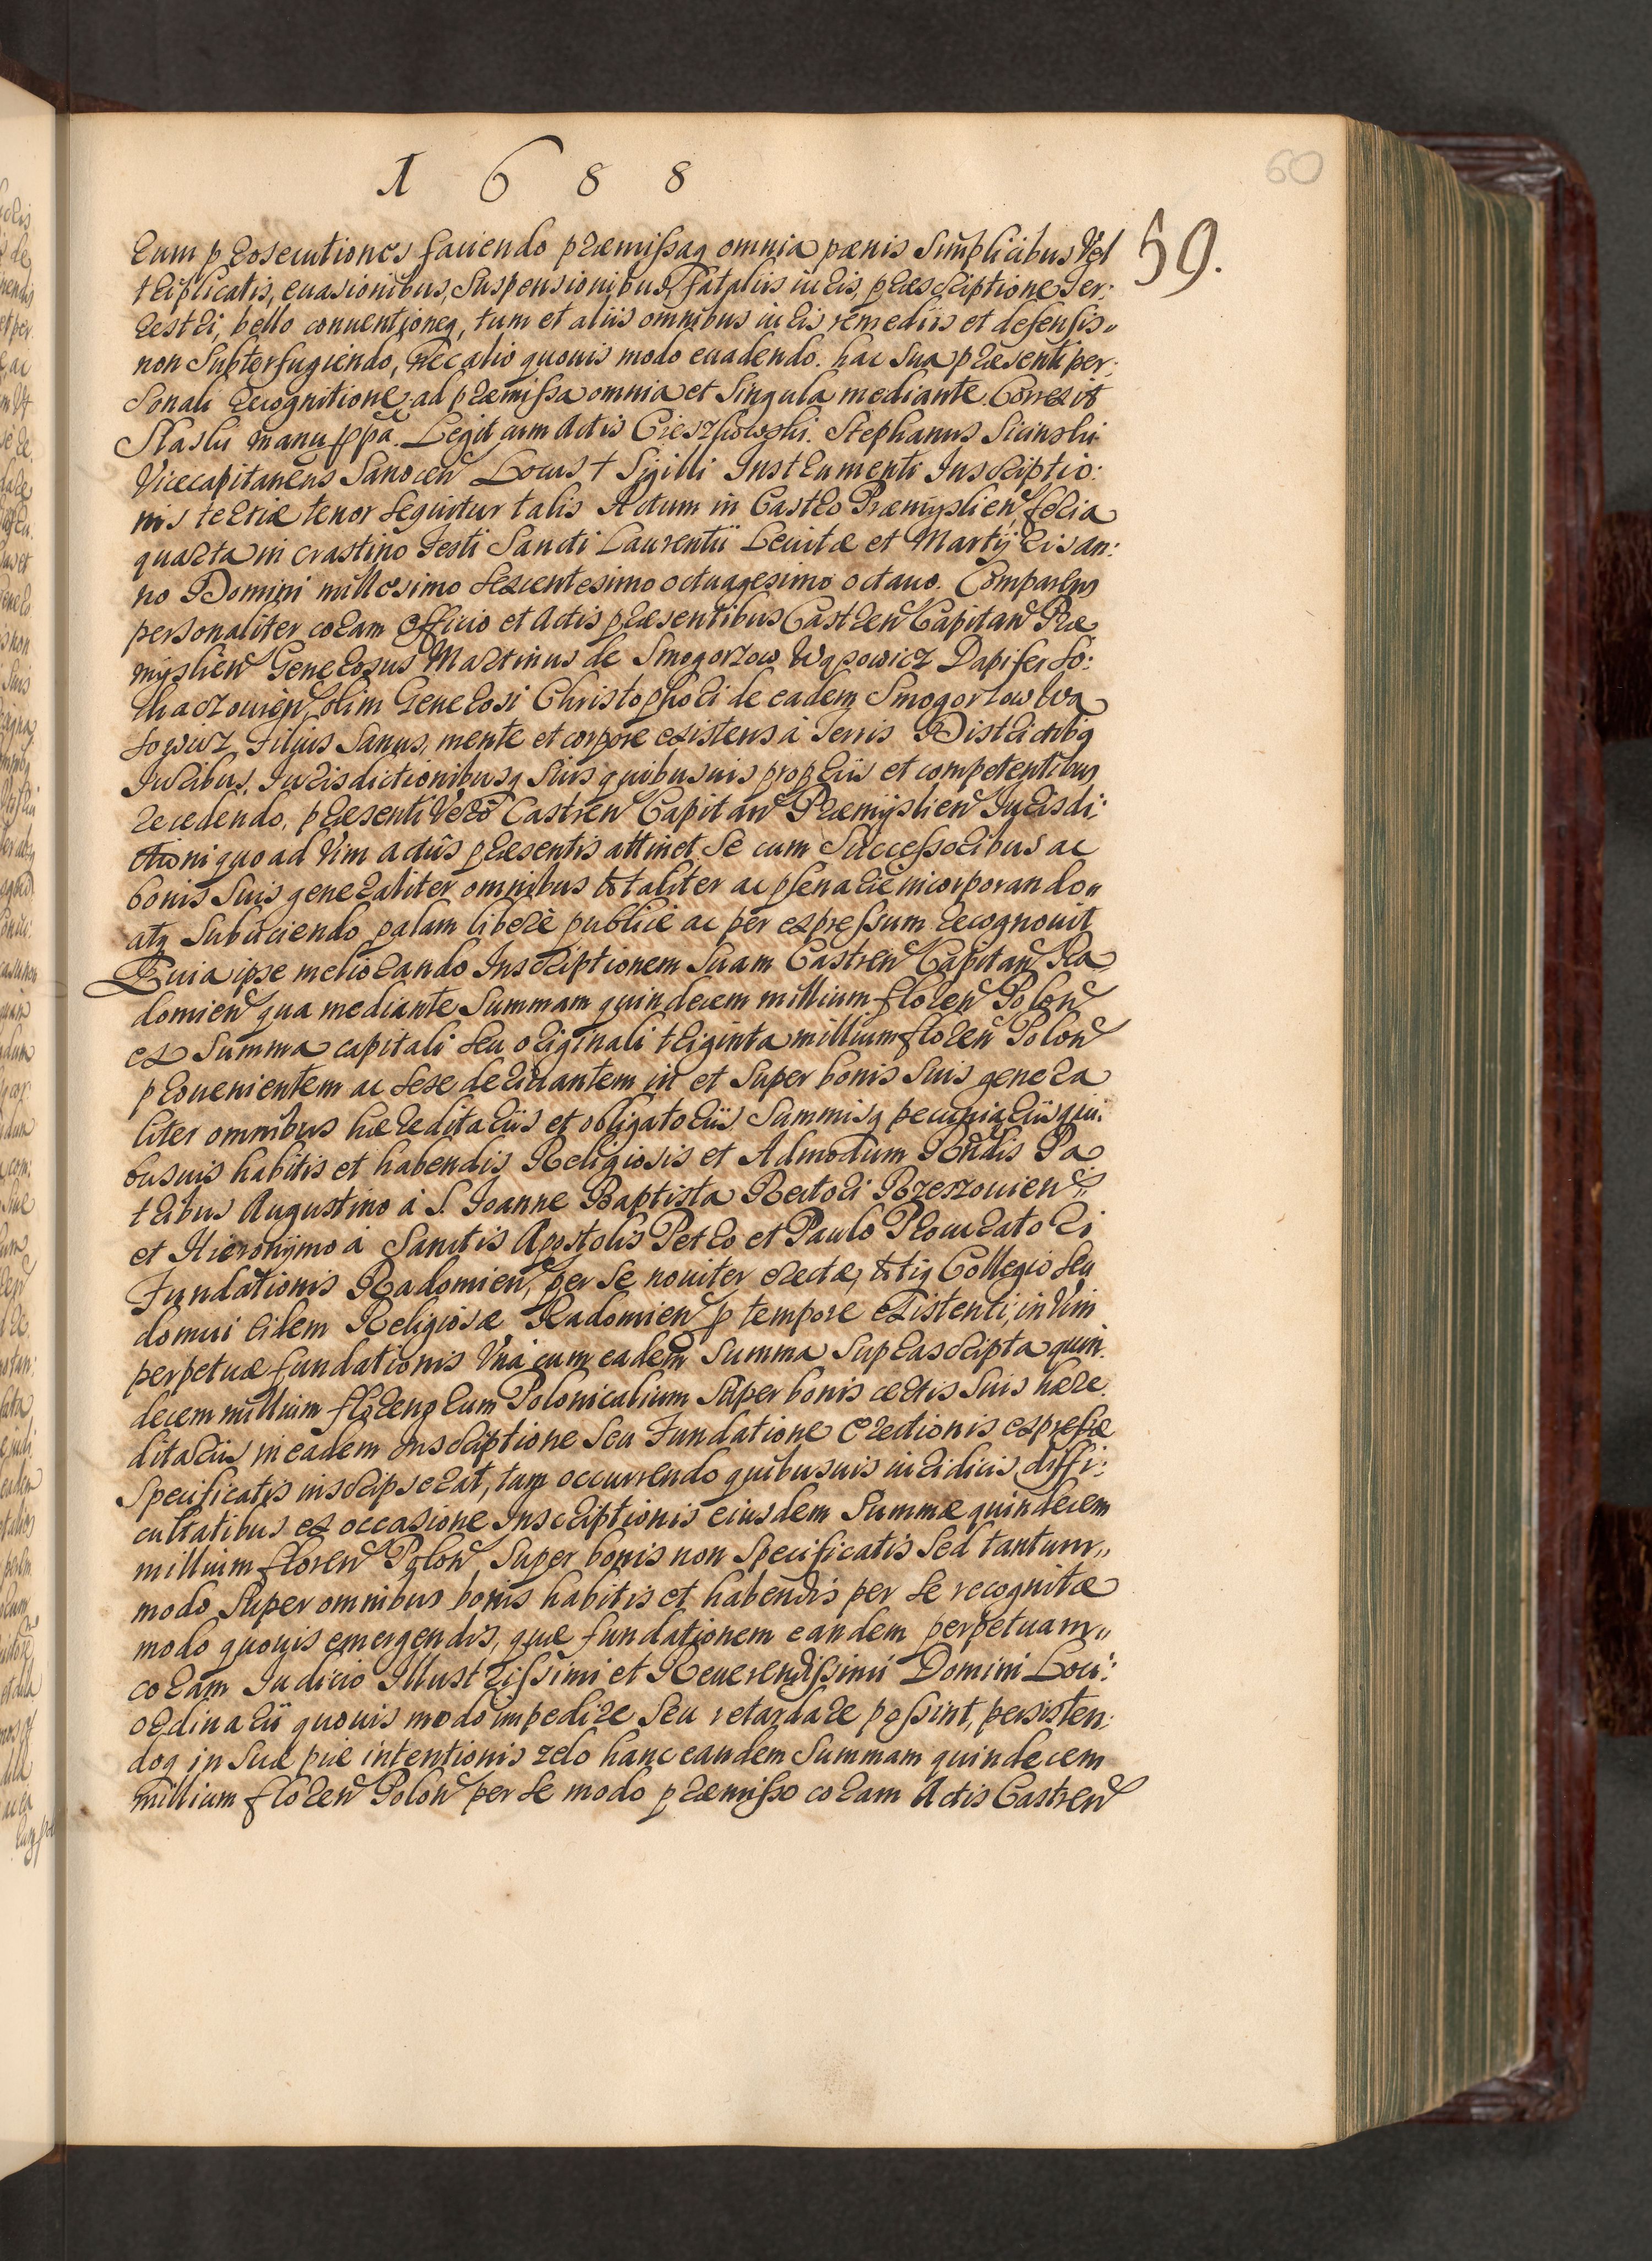 1 6 8 8
60
59.
rum prosecutiones faciendo præmissaq omnia pænis simplicibus Vel
triplicatis, euasionibus, Suspensionibus, Fatalijs iuris, præscriptione Ter:
restri, bello conuentioneq, tum et alijs omnibus iuris remedijs et defensis
non Subterfugiendo, Nec alio quouis modo euadendo. hac Sua præsenti per:
sonali recognitione ad præmissa omnia et Singula mediante. Correxit
Slaski manu ppa. Legit cum Actis Cieszkowski. Stephanus Sicinski
Vicecapitaneus Sanocen Locus + Sigilli Instrumenti Inscriptio:
nis tertiæ tenor Sequitur talis Actum in Castro Præmyslien, feria
quarta in crastino Festi Sancti Laurentij Leuitæ et Martyris an:
no Domini millesimo Sexcentesimo octuagesimo octauo. Comparens
personaliter coram Officio et Actis præsentibus Castren Capitan Præ
myslien Generosus Martinus de Smogorzow Wąsowicz Dapifer So:
chaczouien, olim Generosi Christophori de eadem Smogorzow Wą
sowicz Filius Sanus, mente et corpore existens à Terris Districtibq
Iuribus, Iurisdictionibusq Suis quibusuis proprijs et competentibus
recedendo, præsenti Verò Castren Capitan Præmyslien Iurisdi:
ctioni quo ad Vim actûs præsentis attinet Se cum Successoribus ac
bonis Suis generaliter omnibus totaliter ac plenariè incorporando
atq Subijciendo palam liberè publicè ac per expressum recognouit
Quia ipse meliorando Inscriptionem Suam Castren Capitan Ra
domien qua mediante Summam quindecem millium floren Polon
ex Summa capitali Seu originali triginta millium floren Polon
prouenientem ac Sese deriuantem in et Super bonis Suis genera
liter omnibus hæreditarijs et obligatorijs Summisq pecuniarijs qui:
busuis habitis et habendis Religiosis et Admodum Rndis Pa
tribus Augustino à S. Ioanne Baptista Rectori Rzeszouien
et Hieronymo à Sanctis Apostolis Petro et Paulo Procuratori
Fundationis Radomien, per Se nouiter erectæ, totiq Collegio Seu
domui eidem Religiosæ Radomien p tempore existenti, in Vim
perpetuæ fundationis Vnà cum eadem Summa Suprascripta quin:
decem millium florenorum Polonicalium Super bonis certis Suis hære:
ditarijs in eadem Inscriptione Seu Fundatione Erectionis expresse
Specificatis inscripserat, tam occurrendo quibusuis iuridicis diffi:
cultatibus ex occasione Inscriptionis eiusdem Summæ quindecem
millium floren Polon Super bonis non Specificatis Sed tantum
modo Super omnibus bonis habitis et habendis per Se recognitæ
modo quouis emergendis, quæ fundationem eandem perpetuam
coram Iudicio Illustrissimi et Reuerendissimi Domini Loci:
ordinarij quouis modo impedire Seu retardare possint, persisten:
doq in Suæ piæ intentionis zelo hanc eandem Summam quindecem
millium floren Polon per Se modo præmisso coram Actis Castren